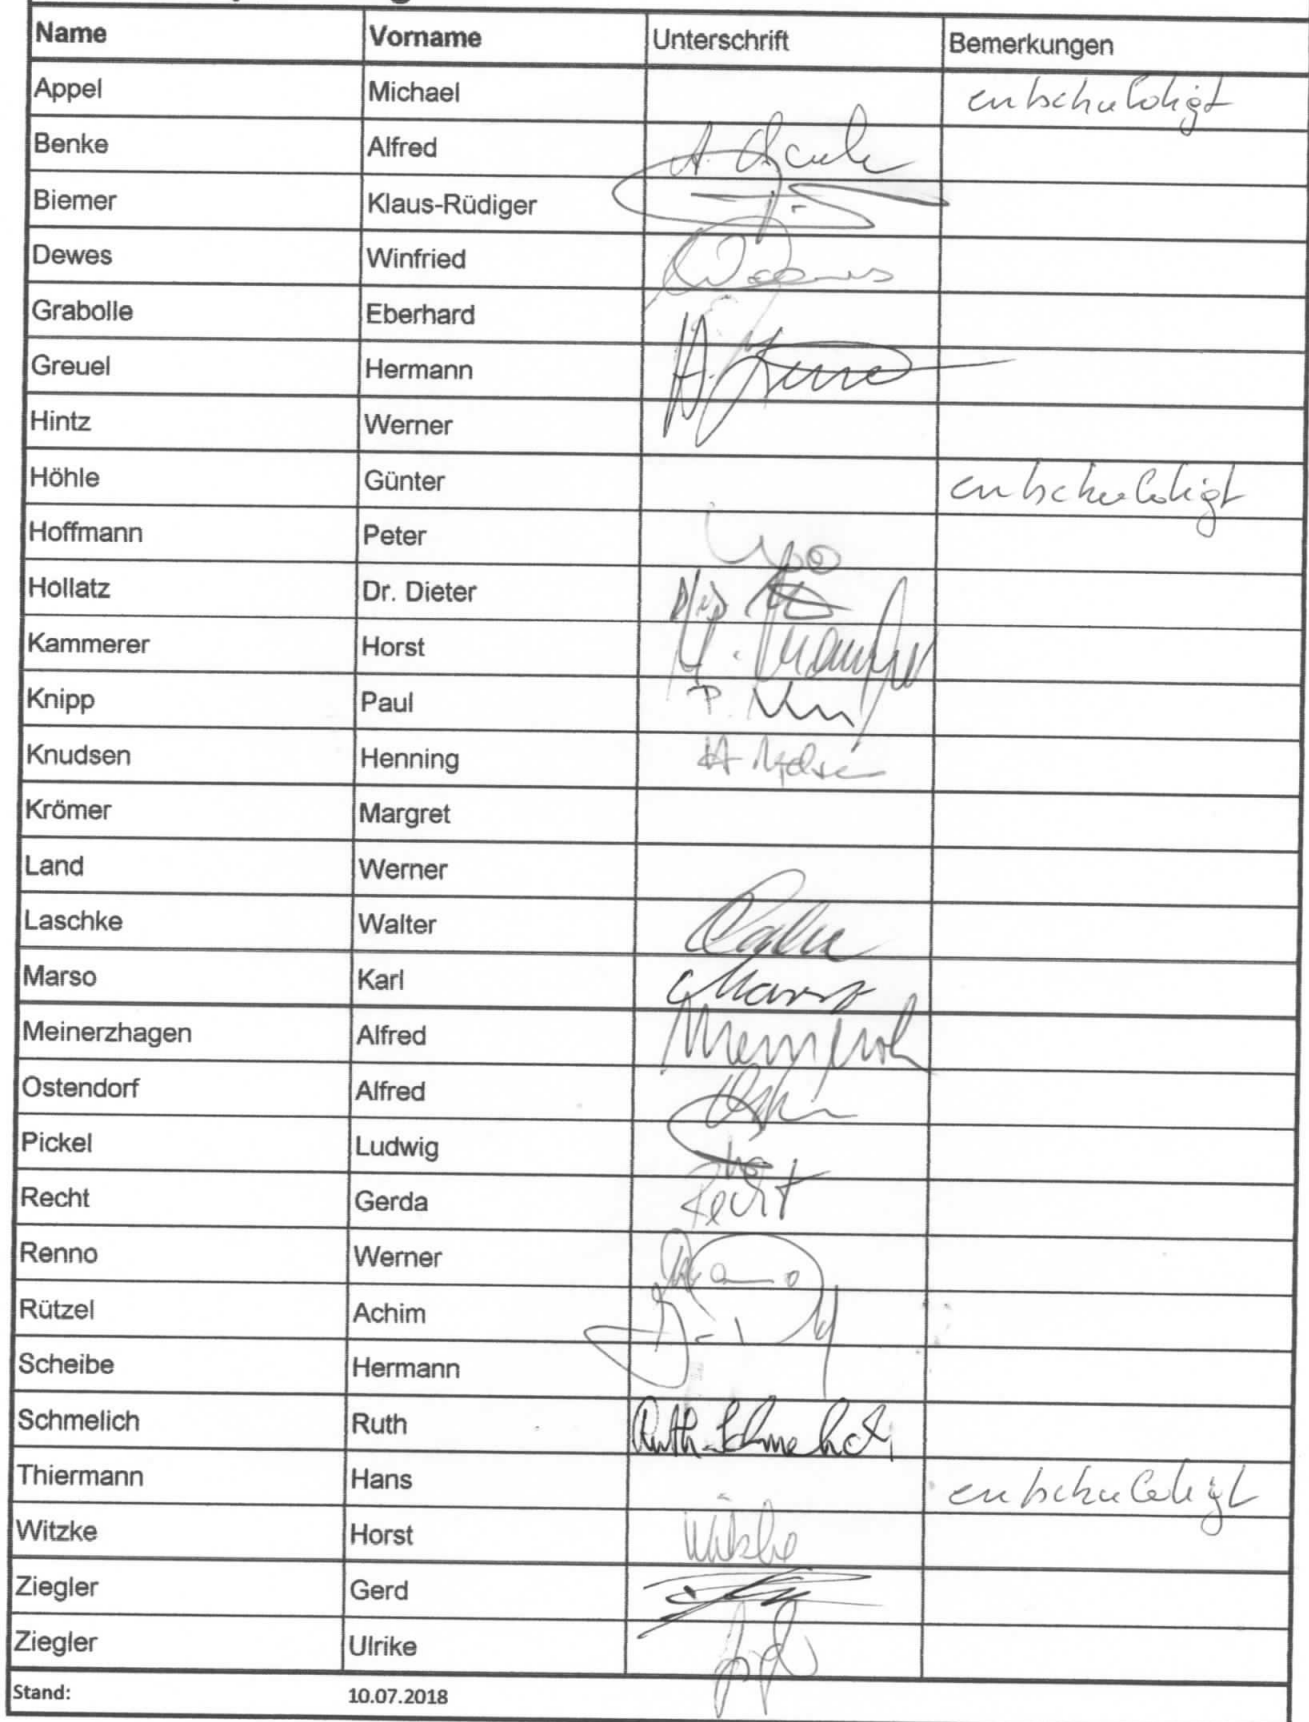 Name Vorname Unterschrift Bemerkungen
Appel Michael entschuldigt
Benke Alfred
Biemer Klaus-Rüdiger
Dewes Winfried
Grabolle Eberhard
Greuel Hermann
Hintz Werner
Höhle Günter entschuldigt
Hoffmann Peter
Hollatz Dr. Dieter
Kammerer Horst
Knipp Paul
Knudsen Henning
Krömer Margret
Land Werner
Laschke Walter
Marso Karl
Meinerzhagen Alfred
Ostendorf Alfred
Pickel Ludwig
Recht Gerda Recht
Renno Werner
Rützel Achim
Scheibe Hermann
Schmelich Ruth Ruth Schmelich
Thiermann Hans entschuldigt
Witzke Horst Witzke
Ziegler Gerd
Ziegler Ulrike
Stand: 10.07.2018